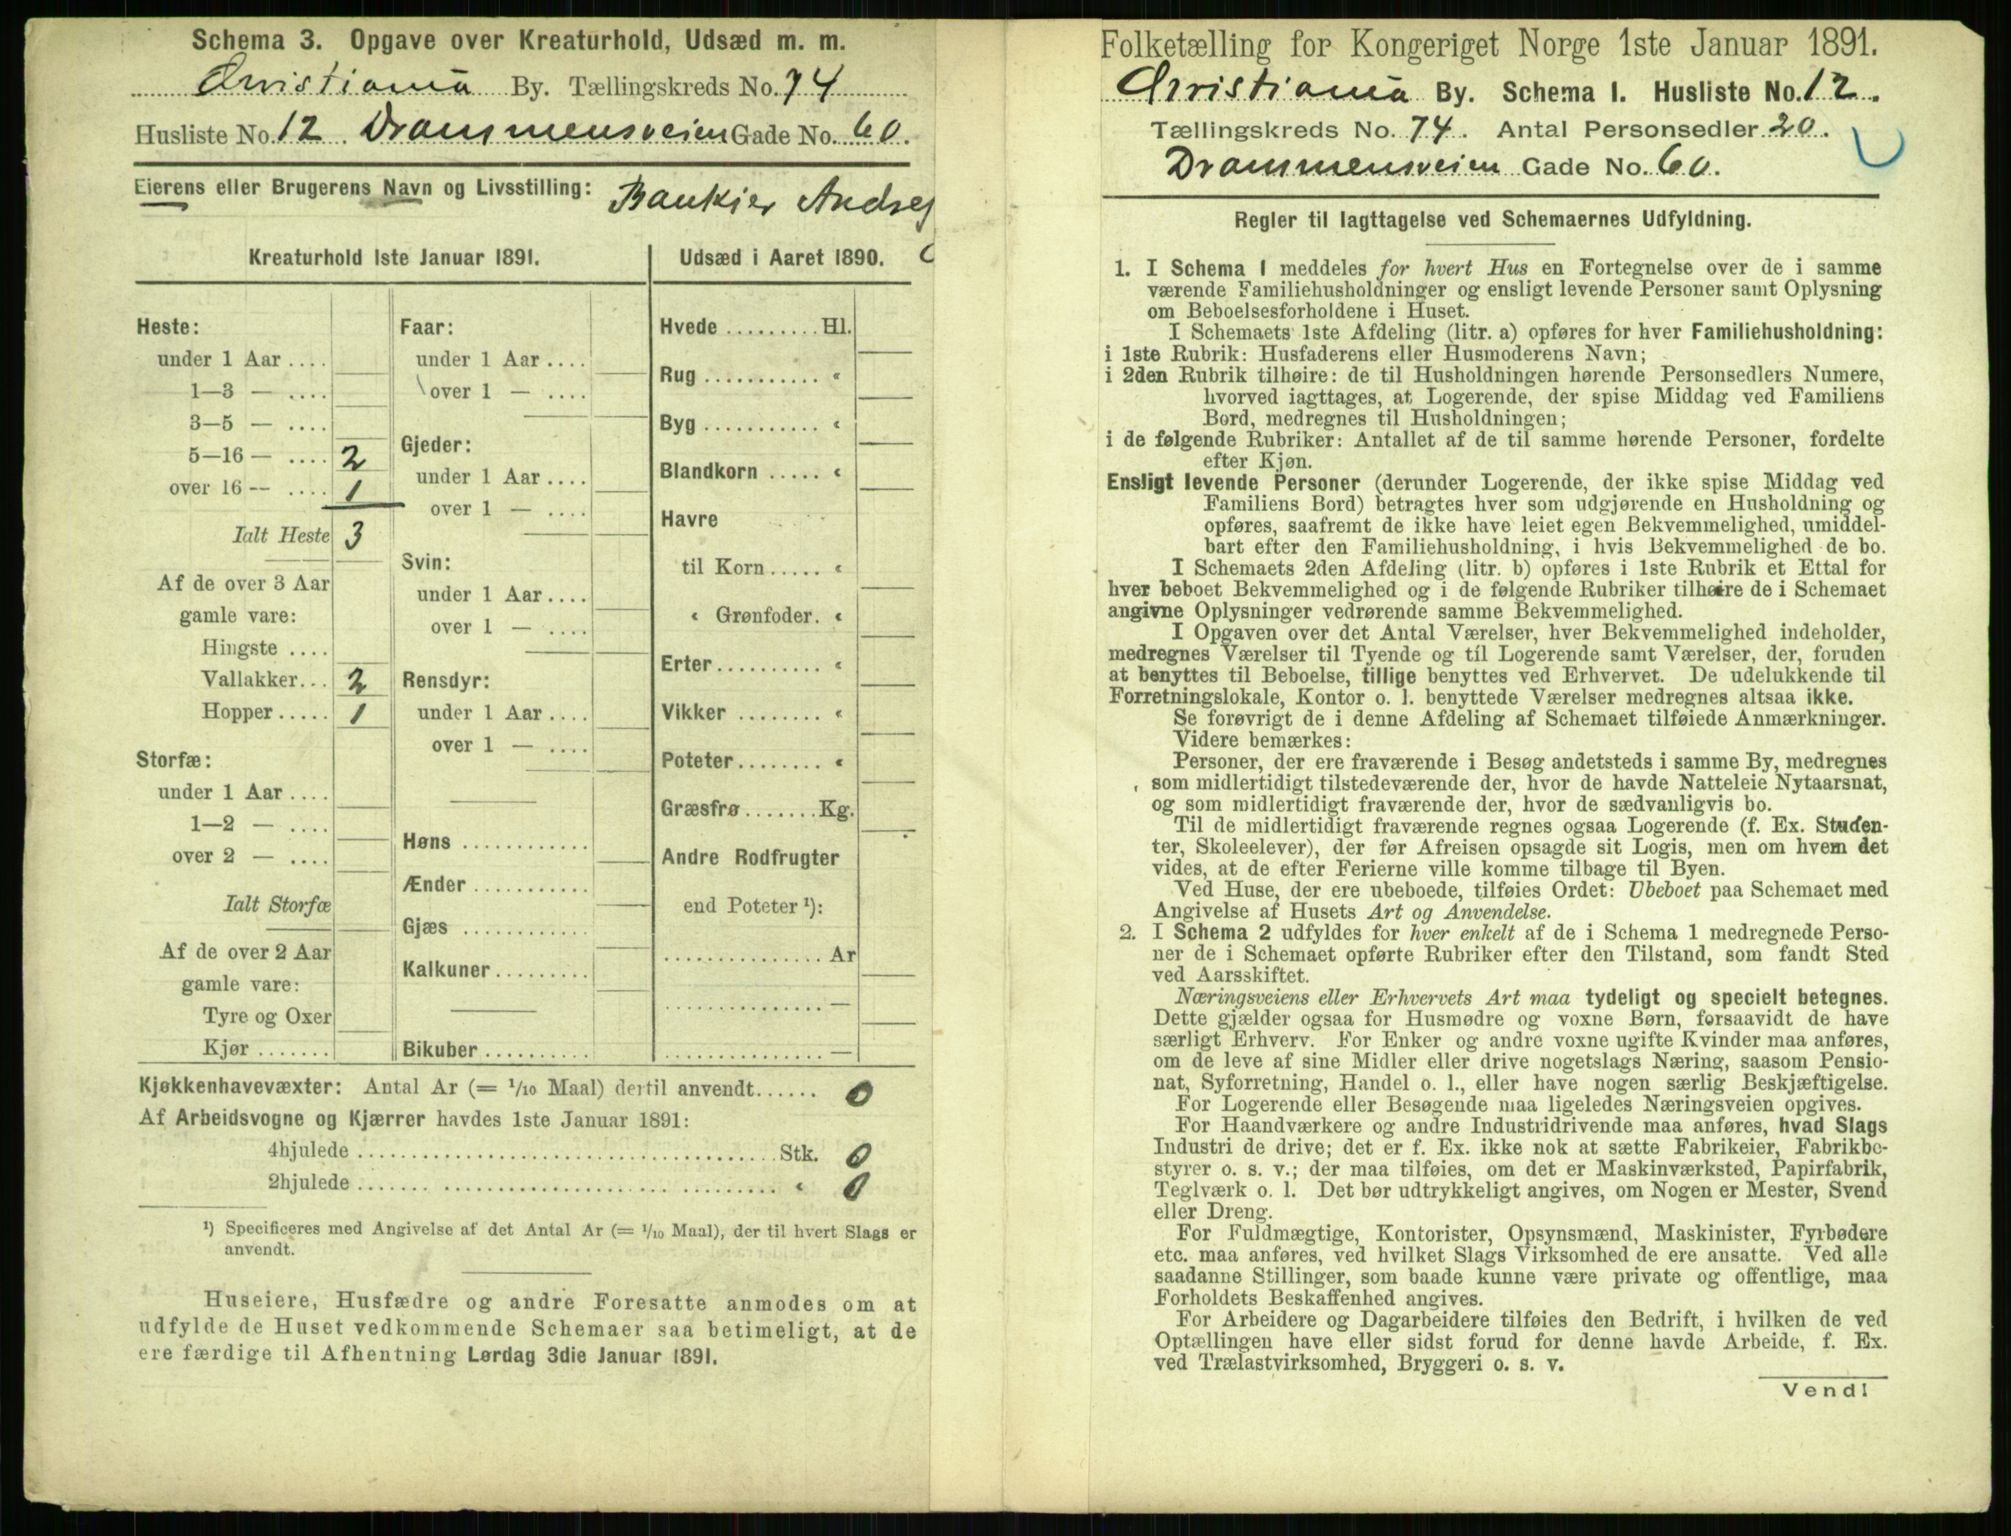 Schema 3. Opgave over Kreaturhold, Udsæd m. m.
Christiania By. Tællingskreds No. 74
Husliste No. 12. Drammensveien Gade No. 60.
Eierens eller Brugerens Navn og Livsstilling: Bankier
Kreaturhold 1ste Januar 1891.
Heste:
under 1 Aar ....
1—3 — ....
3—5 — ....
5—16 — .... 2
over 16 -- .... 1
Ialt Heste 3
Af de over 3 Aar
gamle vare:
Hingste ....
Vallakker... 2
Hopper ..... 1
Storfæ:
under 1 Aar ....
1—2 — ....
over 2 — ....
Ialt Storfæ
Af de over 2 Aar
gamle vare:
Tyre og Oxer
Kjør .......
Faar:
under 1 Aar ....
over 1 — ....
Gjeder:
under 1 Aar ....
over 1 — ....
Svin:
under 1 Aar ....
over 1 — ....
Rensdyr:
under 1 Aar ....
over 1 — ....
Høns ............
Ænder ...........
Gjæs ............
Kalkuner.........
Bikuber ..........
Udsæd i Aaret 1890.
Hvede ......... Hl.
Rug ........... «
Byg ........... «
Blandkorn ..... «
Havre
til Korn ..... «
« Grønfoder. «
Erter.......... «
Vikker ........ «
Poteter........ «
Græsfrø....... Kg.
Andre Rodfrugter
end Poteter ¹):
............... Ar
............... —
............... —
Kjøkkenhavevæxter: Antal Ar (= 1/10 Maal) dertil anvendt...... 0
Af Arbeidsvogne og Kjærrer havdes 1ste Januar 1891:
4hjulede ........................................ Stk. 0
2hjulede ........................................ « 0
¹) Specificeres med Angivelse af det Antal Ar (= 1/10 Maal), der til hvert Slags er
anvendt.
Huseiere, Husfædre og andre Foresatte anmodes om at
udfylde de Huset vedkommende Schemaer saa betimeligt, at de
ere færdige til Afhentning Lørdag 3die Januar 1891.
Folketælling for Kongeriget Norge 1ste Januar 1891.
Christiania By. Schema 1. Husliste No. 12.
Tællingskreds No. 74. Antal Personsedler 20.
Drammensveien Gade No. 60.
Regler til Iagttagelse ved Schemaernes Udfyldning.
1. I Schema 1 meddeles for hvert Hus en Fortegnelse over de i samme
værende Familiehusholdninger og ensligt levende Personer samt Oplysning
om Beboelsesforholdene i Huset.
I Schemaets 1ste Afdeling (litr. a) opføres for hver Familiehusholdning:
i 1ste Rubrik: Husfaderens eller Husmoderens Navn;
i 2den Rubrik tilhøire: de til Husholdningen hørende Personsedlers Numere,
hvorved iagttages, at Logerende, der spise Middag ved Familiens
Bord, medregnes til Husholdningen;
i de følgende Rubriker: Antallet af de til samme hørende Personer, fordelte
efter Kjøn.
Ensligt levende Personer (derunder Logerende, der ikke spise Middag ved
Familiens Bord) betragtes hver som udgjørende en Husholdning og
opføres, saafremt de ikke have leiet egen Bekvemmelighed, umiddel-
bart efter den Familiehusholdning, i hvis Bekvemmelighed de bo.
I Schemaets 2den Afdeling (litr. b) opføres i 1ste Rubrik et Ettal for
hver beboet Bekvemmelighed og i de følgende Rubriker tilhøire de i Schemaet
angivne Oplysninger vedrørende samme Bekvemmelighed.
I Opgaven over det Antal Værelser, hver Bekvemmelighed indeholder,
medregnes Værelser til Tyende og til Logerende samt Værelser, der, foruden
at benyttes til Beboelse, tillige benyttes ved Erhvervet. De udelukkende til
Forretningslokale, Kontor o. l. benyttede Værelser medregnes altsaa ikke.
Se forøvrigt de i denne Afdeling af Schemaet tilføiede Anmærkninger.
Videre bemærkes:
Personer, der ere fraværende i Besøg andetsteds i samme By, medregnes
som midlertidigt tilstedeværende der, hvor de havde Natteleie Nytaarsnat,
og som midlertidigt fraværende der, hvor de sædvanligvis bo.
Til de midlertidigt fraværende regnes ogsaa Logerende (f. Ex. Studen-
ter, Skoleelever), der før Afreisen opsagde sit Logis, men om hvem det
vides, at de efter Ferierne ville komme tilbage til Byen.
Ved Huse, der ere ubeboede, tilføies Ordet: Ubeboet paa Schemaet med
Angivelse af Husets Art og Anvendelse.
2. I Schema 2 udfyldes for hver enkelt af de i Schema 1 medregnede Perso-
ner de i Schemaet opførte Rubriker efter den Tilstand, som fandt Sted
ved Aarsskiftet.
Næringsveiens eller Erhvervets Art maa tydeligt og specielt betegnes.
Dette gjælder ogsaa for Husmødre og voxne Børn, forsaavidt de have
særligt Erhverv. For Enker og andre voxne ugifte Kvinder maa anføres,
om de leve af sine Midler eller drive nogetslags Næring, saasom Pensio-
nat, Syforretning, Handel o. l., eller have nogen særlig Beskjæftigelse.
For Logerende eller Besøgende maa ligeledes Næringsveien opgives.
For Haandværkere og andre Industridrivende maa anføres, hvad Slags
Industri de drive; det er f. Ex. ikke nok at sætte Fabrikeier, Fabrikbe-
styrer o. s. v.; der maa tilføies, om det er Maskinværksted, Papirfabrik,
Teglværk o. l. Det bør udtrykkeligt angives, om Nogen er Mester, Svend
eller Dreng.
For Fuldmægtige, Kontorister, Opsynsmænd, Maskinister, Fyrbødere
etc. maa anføres, ved hvilket Slags Virksomhed de ere ansatte. Ved alle
saadanne Stillinger, som baade kunne være private og offentlige, maa
Forholdets Beskaffenhed angives.
For Arbeidere og Dagarbeidere tilføies den Bedrift, i hvilken de ved
Optællingen have eller sidst forud for denne havde Arbeide, f. Ex.
ved Trælastvirksomhed, Bryggeri o. s. v.
Vend!